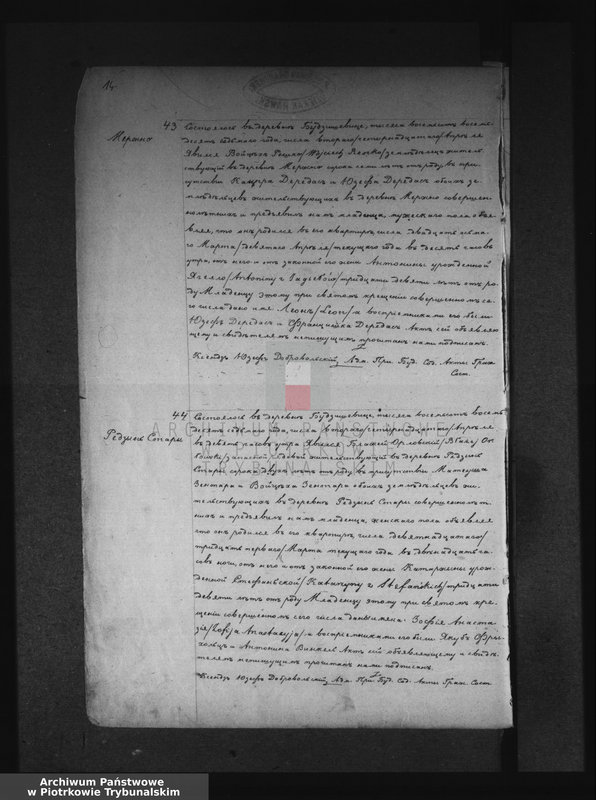 14
43 Состоялось въ деревнѣ Будзишевице, тысяча восемьсотъ восемь
Мерзно
десятъ седьмого года, числа втораго /четырнадцатаго/ Апрѣля
Явился Войцѣхъ Рецко /Wojciech Recko/ земледѣлецъ житель
ствующій въ деревнѣ Мерзно сорока семи лѣтъ отъ роду въ при
сутствіи Кацпера Дередасъ и Юзефа Дередасъ обоихъ зе
мледѣльцевъ жительствующихъ въ деревнѣ Мерзно совершен
нолѣтнихъ и предъявилъ намъ младенца, мужескаго пола объя
вляя, что онъ родился въ его квартирѣ числа двадцать
го Марта /девятаго Апрѣля/ текущаго года въ десять часовъ
утра, отъ него и отъ законной его жены Антонины урожденной
/Antoniny z / тридцати девяти лѣтъ отъ ро
ду Младенцу этому при святомъ крещеніи совершенномъ се
го числа дано имя Леонъ /Leon/, а воспріемниками его были
Юзефъ Дередасъ и Францишка Дередасъ Актъ сей объявляю
щему и свидѣтелямъ неписьменнымъ прочитанъ нами подписанъ.
Ксендзъ Юзефъ Добровольскій Адм. При. Буд. Сод. Акты Граж.
Сост.
44 Состоялось въ деревнѣ Будзишевице, тысяча восемьсотъ восемь
Редзынь Стары
десятъ седьмого года, числа втораго /четырнадцатаго/ Апрѣля
въ девять часовъ утра Явился Блажей Орловскій /Błażej Or
łowski/ рядовой жительствующій въ деревнѣ Редзынь
Стары сорока двухъ лѣтъ отъ роду въ присутствіи Матеуша
Зентара и Войцѣха Зентара обоихъ земледѣльцевъ жи
тельствующихъ въ деревнѣ Редзынь Стары совершеннолѣт
нихъ и предъявилъ намъ младенца, женскаго пола объявляя
что онъ родился въ его квартирѣ числа девятнадцатаго/
тридцать перваго/ Марта текущаго года въ двѣнадцать ча
совъ ночи, отъ него и отъ законной его жены Катаржины урож
денной Стефаньской /Katarzyny z Stefańskich/ тридцати
девяти лѣтъ отъ роду Младенцу этому при святомъ кре
щеніи совершенномъ сего числа даны имена: Зофія Анаста
зія /Zofja Anastazyja/ а воспріемниками его были Якубъ
и Антонина Актъ сей объявляющему и свидѣ
телямъ неписьменнымъ прочитанъ нами подписанъ.
Ксендзъ Юзефъ Добровольскій Адм. При. Буд. Сод. Акты Граж. Сост.
Archiwum Państwowe
w Piotrkowie Trybunalskim